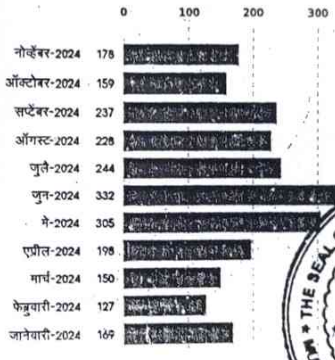 0 100 200 300
नोव्हेंबर-2024 178
ऑक्टोबर-2024 159
सप्टेंबर-2024 237
ऑगस्ट-2024 228
जुलै-2024 244
जुन-2024 332
मे-2024 305
एप्रील-2024 198
मार्च-2024 150
फेब्रुवारी-2024 127
जानेवारी-2024 169
THE SEAL